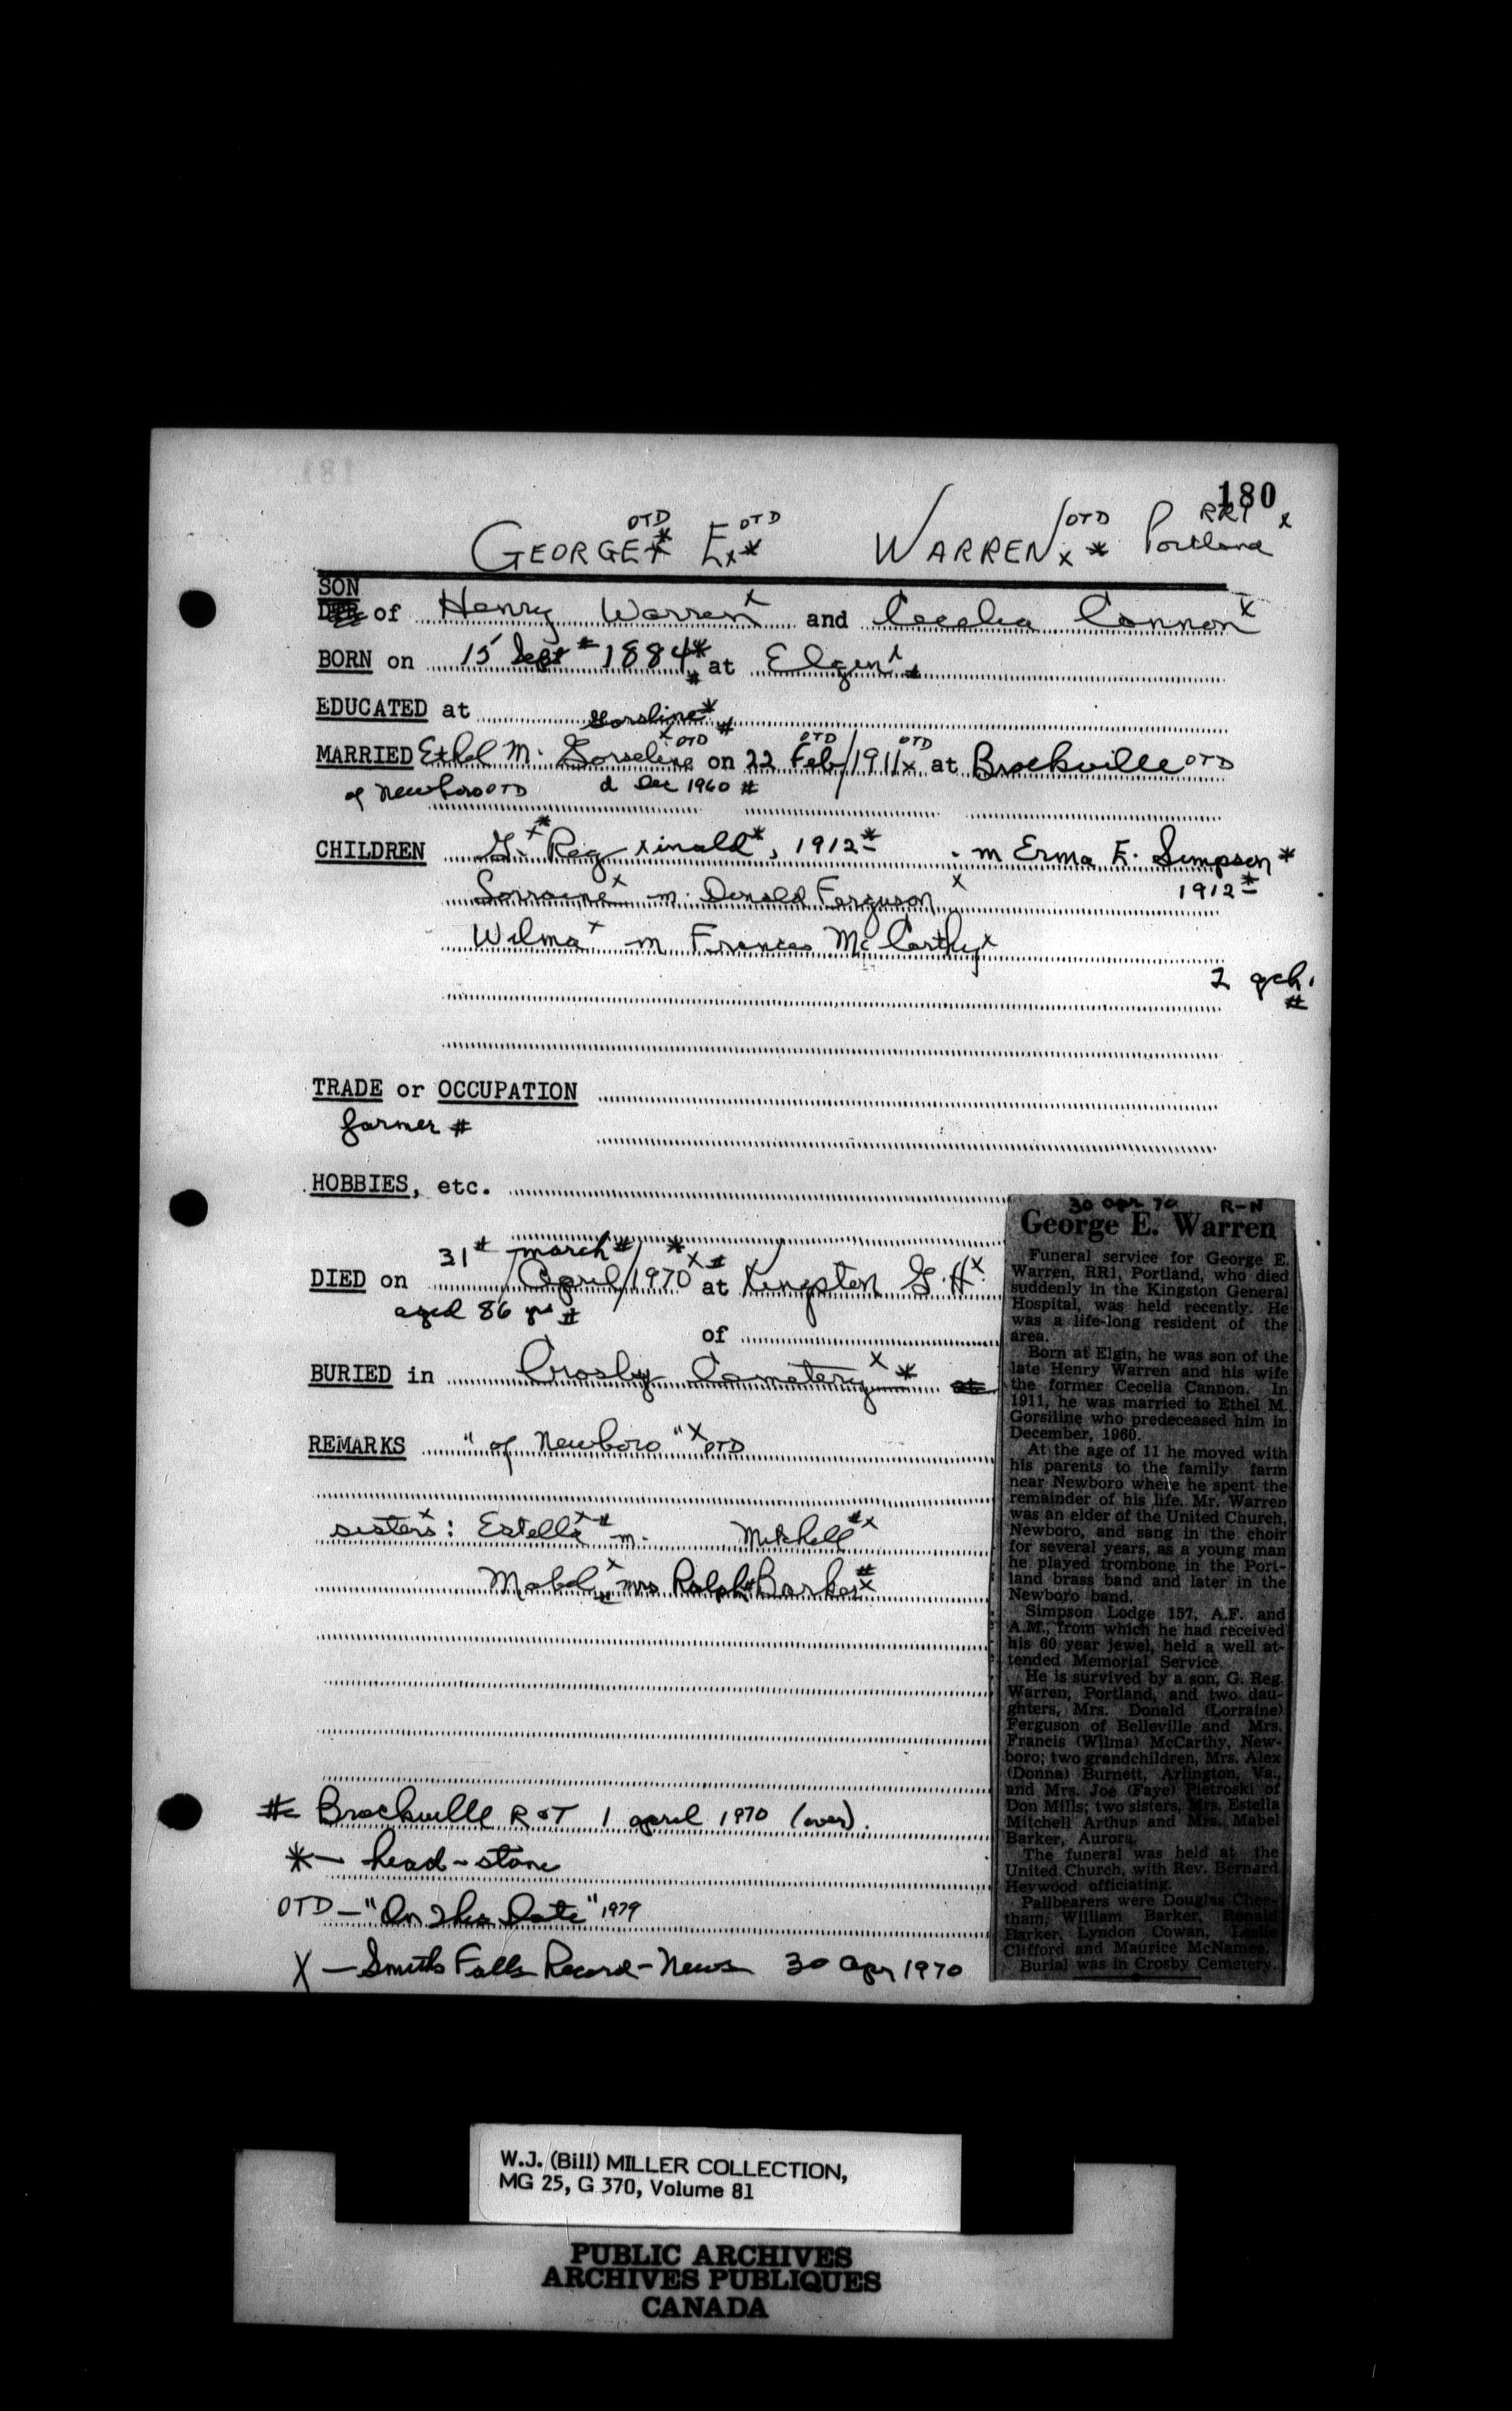 180
GEORGE OTD * x E OTD x * WARREN OTD x * RR1 x
Portland
SON
DTR of Henry Warren x and Cecelia Cannon x
BORN on 15 Sept # 1884 * # at Elgin x #
EDUCATED at
Gorsline * #
MARRIED Ethel M. Gorseline x OTD on 22 Feb OTD / 1911 OTD x at Brockville OTD
of Newboro OTD d Dec 1960 #
CHILDREN G. x * Reg x inald *, 1912 * - m Erma E. Simpson *
1912 *
Lorraine x m. Donald Ferguson x
Wilma x m Francis McCarthy x
2 gch.
#
TRADE or OCCUPATION
farmer #
HOBBIES, etc.
31 # march #
DIED on April / 1970 * x # at Kingston G.H. x
aged 86 yrs #
of
BURIED in Crosby Cemetery x * at
REMARKS "of Newboro" x OTD
sisters x : Estella x # m. Mitchell # x
Mabel x # mrs Ralph # Barker # x
# Brockville R & T 1 april 1970 (over).
* — head-stone
OTD — "On This Date" 1979
X — Smiths Falls Record-News 30 Apr 1970
30 apr 70 R-N
George E. Warren
Funeral service for George E.
Warren, RR1, Portland, who died
suddenly in the Kingston General
Hospital, was held recently. He
was a life-long resident of the
area.
Born at Elgin, he was son of the
late Henry Warren and his wife
the former Cecelia Cannon. In
1911, he was married to Ethel M.
Gorsiline who predeceased him in
December, 1960.
At the age of 11 he moved with
his parents to the family farm
near Newboro where he spent the
remainder of his life. Mr. Warren
was an elder of the United Church,
Newboro, and sang in the choir
for several years, as a young man
he played trombone in the Port-
land brass band and later in the
Newboro band.
Simpson Lodge 157, A.F. and
A.M., from which he had received
his 60 year jewel, held a well at-
tended Memorial Service.
He is survived by a son, G. Reg.
Warren, Portland, and two dau-
ghters, Mrs. Donald (Lorraine)
Ferguson of Belleville and Mrs.
Francis (Wilma) McCarthy, New-
boro; two grandchildren, Mrs. Alex
(Donna) Burnett, Arlington, Va.,
and Mrs. Joe (Faye) Pietroski of
Don Mills; two sisters, Mrs. Estella
Mitchell Arthur and Mrs. Mabel
Barker, Aurora.
The funeral was held at the
United Church, with Rev. Bernard
Heywood officiating.
Pallbearers were Douglas Chee-
tham, William Barker, Ronald
Barker, Lyndon Cowan, Leslie
Clifford and Maurice McNamee.
Burial was in Crosby Cemetery.
W.J. (Bill) MILLER COLLECTION,
MG 25, G 370, Volume 81
PUBLIC ARCHIVES
ARCHIVES PUBLIQUES
CANADA